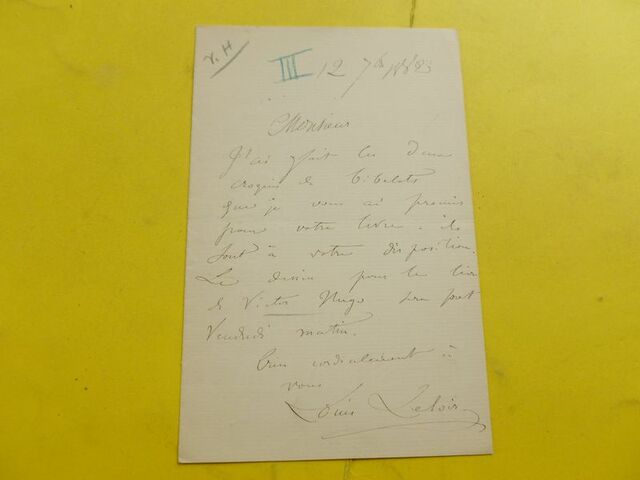 V. H
III 12 7bre 1883
Monsieur
J'ai fait les deux
croquis de bibelots
que je vous ai promis
pour votre livre. ils
sont à votre disposition.
Le dessin pour le livre
de Victor Hugo sera prêt
Vendredi matin.
bien cordialement à
vous
Louis Leloir